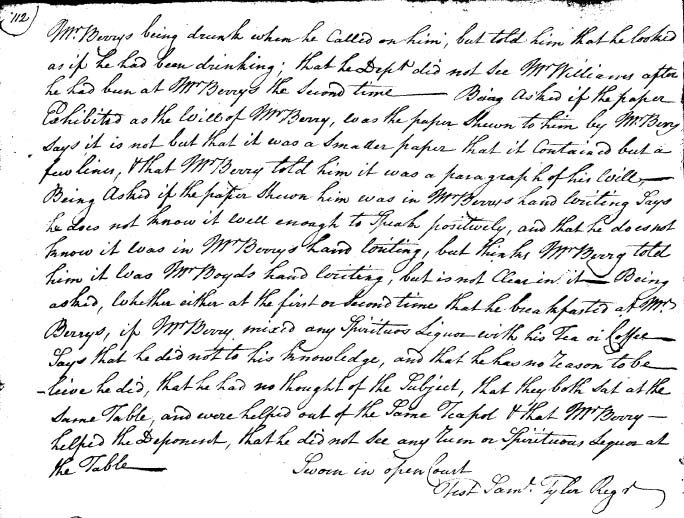 112
Mr. Berrys being drunk when he Called on him, but told him that he looked
as if he had been drinking; that he Dept. did not see Mr Williams after
he had been at Mr Berrys the Second time — Being Asked if the paper
Exhibited as the Will of Mr Berry, was the paper Shewn to him by Mr Berry
Says it is not but that it was a Smaller paper that it Contained but a
few lines, & that Mr Berry told him it was a paragraph of his Will, —
Being Asked if the paper Shewn him was in Mr Berrys hand writing Says
he does not know it well enough to Speak positively, and that he does not
know it was in Mr Berrys hand writing, but thinks Mr Berry told
him it was Mr Boyds hand writing, but is not Clear in it — Being
asked, whether either at the first or Second time that he breakfasted at Mr.
Berrys, if Mr Berry mixed any Spirituos Liquor with his Tea or Coffee
Says that he did not to his knowledge, and that he has no reason to be
-leive he did, that he had no thought of the Subject, that they both Sat at the
Same Table, and were helped out of the Same Teapot & that Mr Berry —
helped the Deponent, that he did not see any Rum or Spirituous Liquor at
the Table —
Sworn in open Court
Test Saml. Tyler Regr